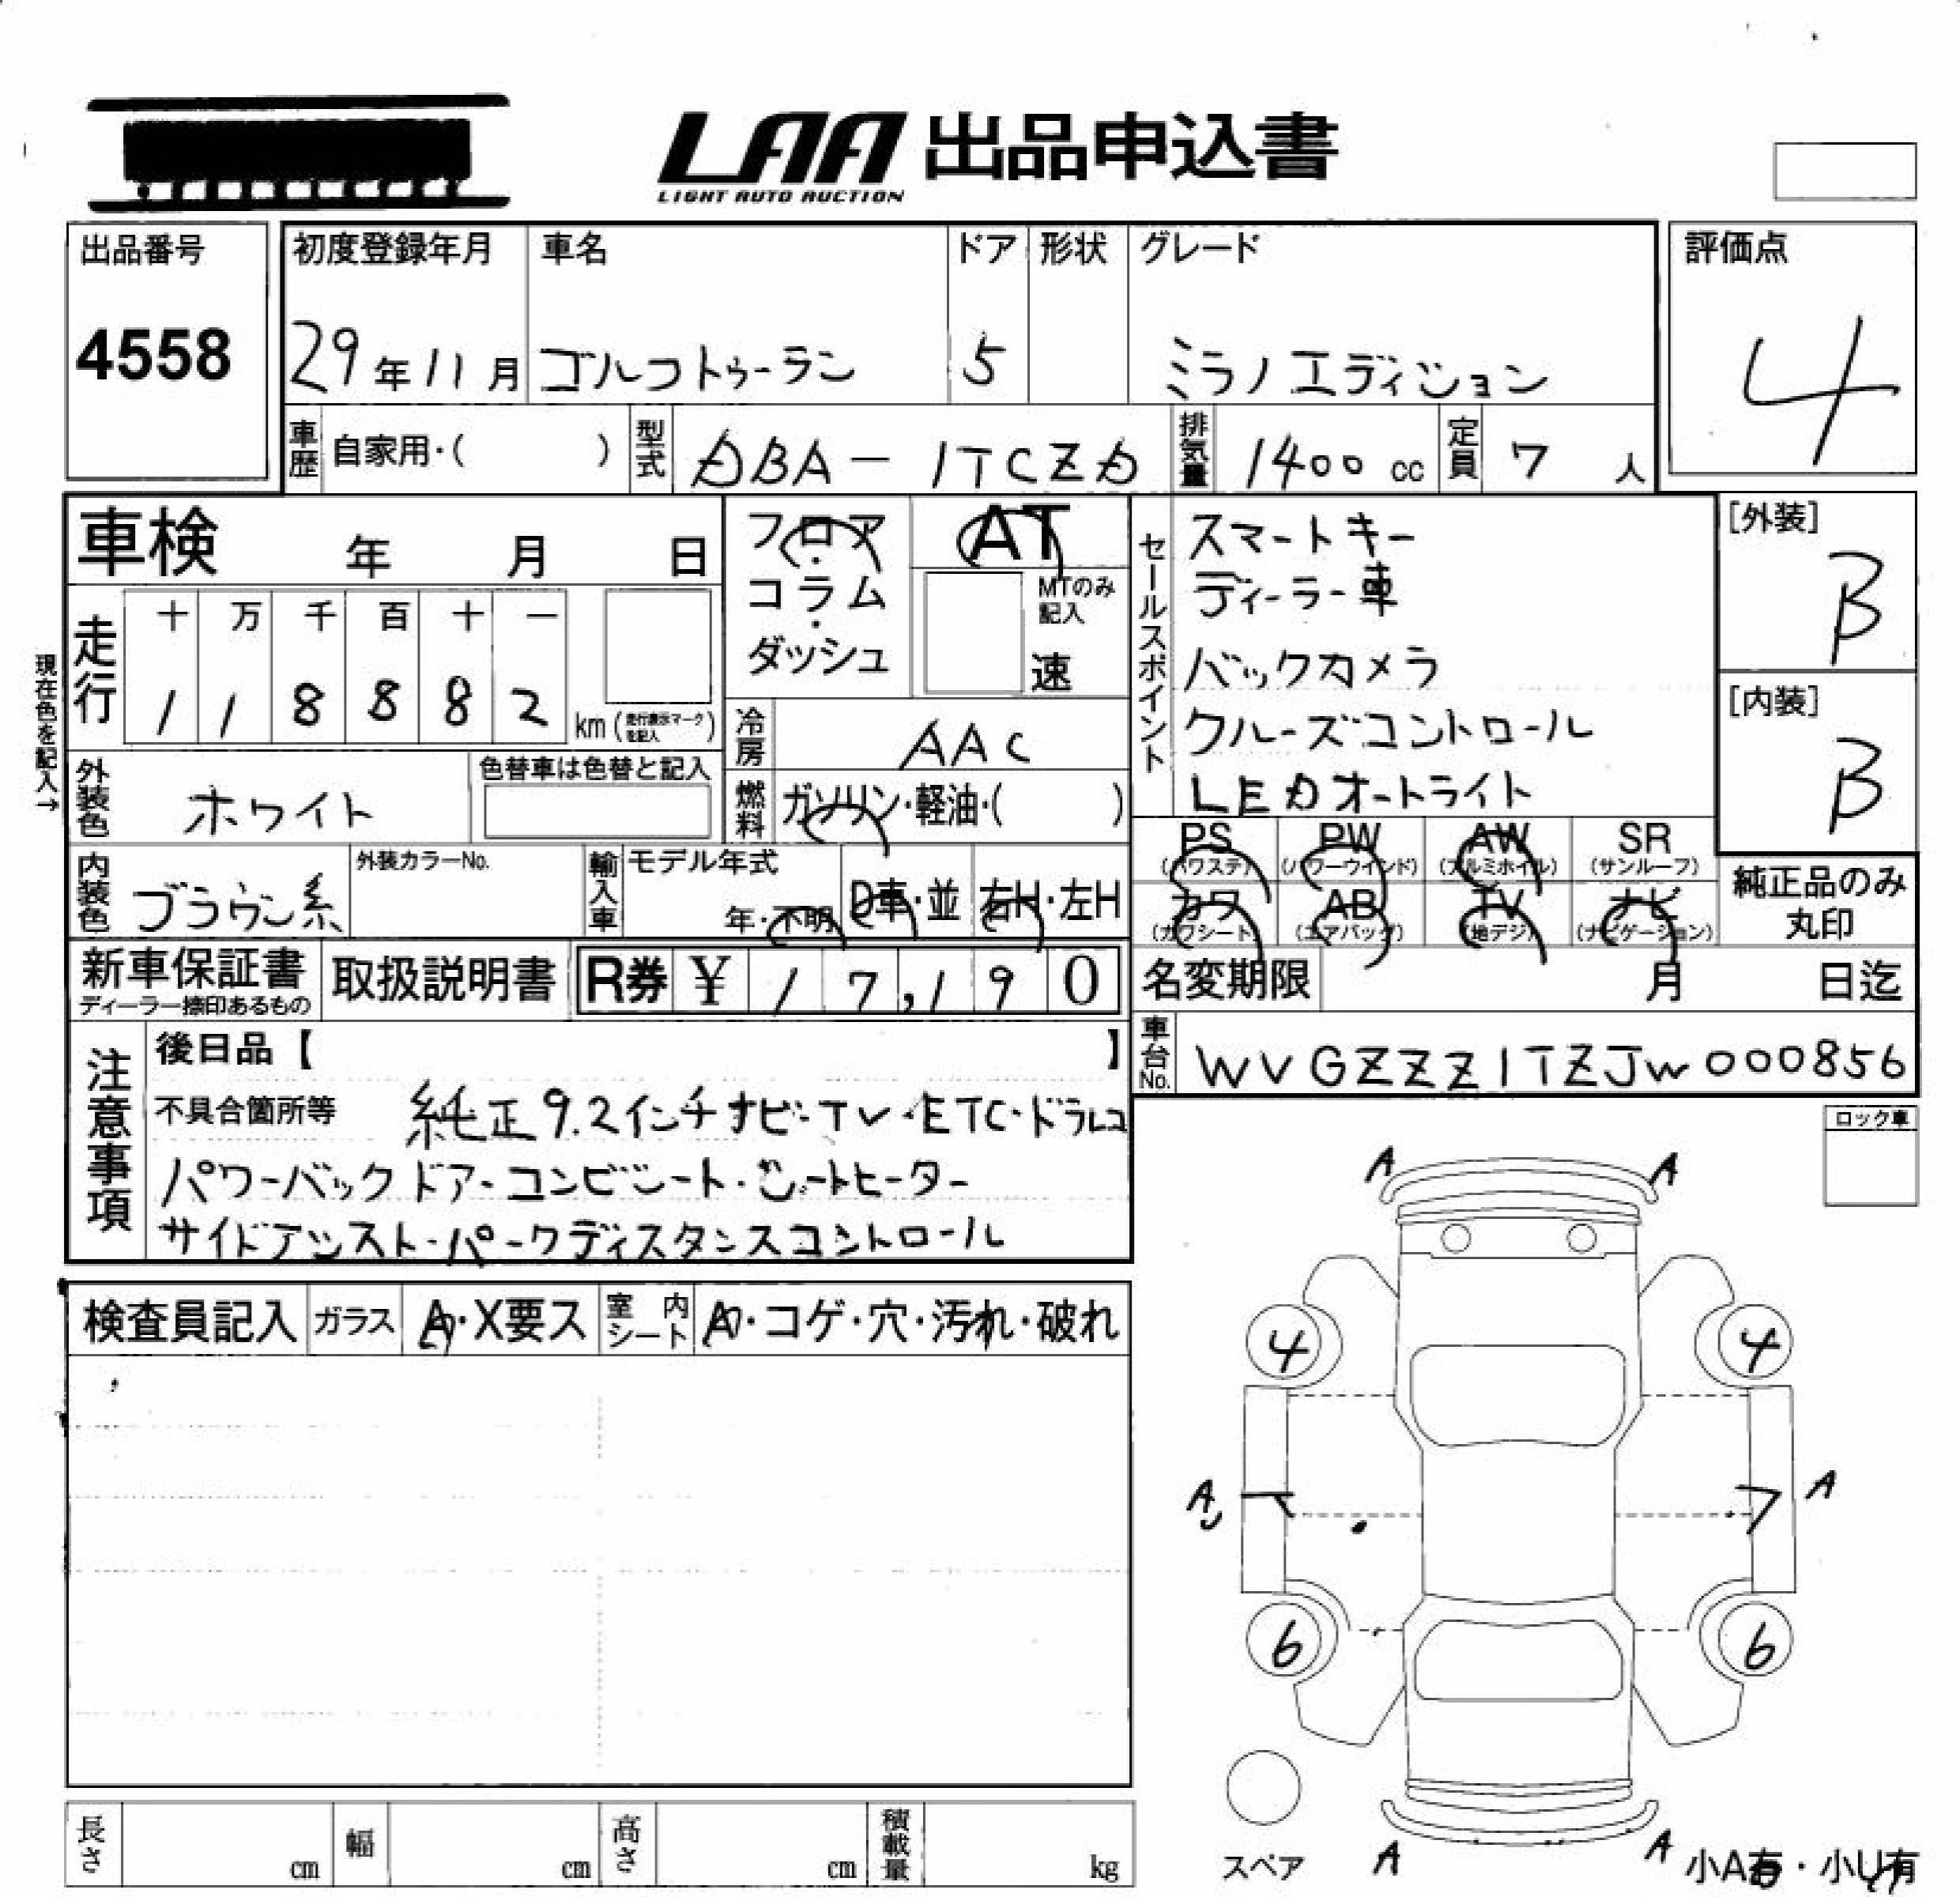 LAA 出品申込書
LIGHT AUTO AUCTION
出品番号
4558
初度登録年月 車名 ドア 形状 グレード
29年11月 ゴルフトゥーラン 5 ミラノエディション
評価点
4
車歴 自家用・( ) 型式 DBA-1TCZD 排気量 1400cc 定員 7人
車検 年 月 日
フロア・コラム・ダッシュ
AT
MTのみ記入
速
セールスポイント
スマートキー
ディーラー車
バックカメラ
クルーズコントロール
LEDオートライト
[外装]
B
[内装]
B
現在色を記入→
走行 十 万 千 百 十 一
1 1 8 8 8 2 km(走行表示マークを記入)
冷房 AAC
外装色 ホワイト 色替車は色替と記入
燃料 ガソリン・軽油・( )
PS (パワステ) PW (パワーウインド) AW (アルミホイル) SR (サンルーフ)
カワ (カワシート) AB (エアバッグ) TV (地デジ) ナビ (ナビゲーション)
純正品のみ丸印
内装色 ブラウン系 外装カラーNo. 輸入車 モデル年式 年・不明 D車・並 右H・左H
新車保証書 ディーラー捺印あるもの 取扱説明書 R券 ¥17,190
名変期限 月 日迄
車台No. WVGZZZ1TZJW000856
注意事項
後日品【 】
不具合箇所等 純正9.2インチナビ・TV・ETC・ドラレコ
パワーバックドア・コンビシート・シートヒーター
サイドアシスト・パークディスタンスコントロール
ロック車
A A
検査員記入 ガラス A・X要ス 室内シート A・コゲ・穴・汚れ・破れ
4 4
A A
6 6
スペア A A 小A有・小U有
長さ cm 幅 cm 高さ cm 積載量 kg